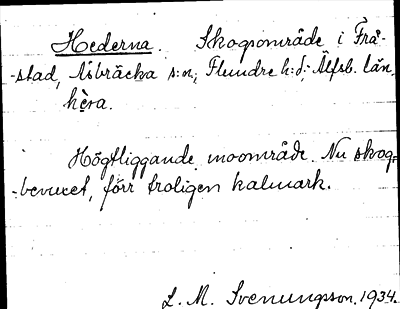 Hederna. Skogsområde i Frå-
-stad, Åsbräcka s:n, Flundre h:d, Älfsb. län.
hèra.
Högtliggande moområde. Nu skog-
-bevuxet, förr troligen kalmark.
L. M. Svenungsson. 1934.